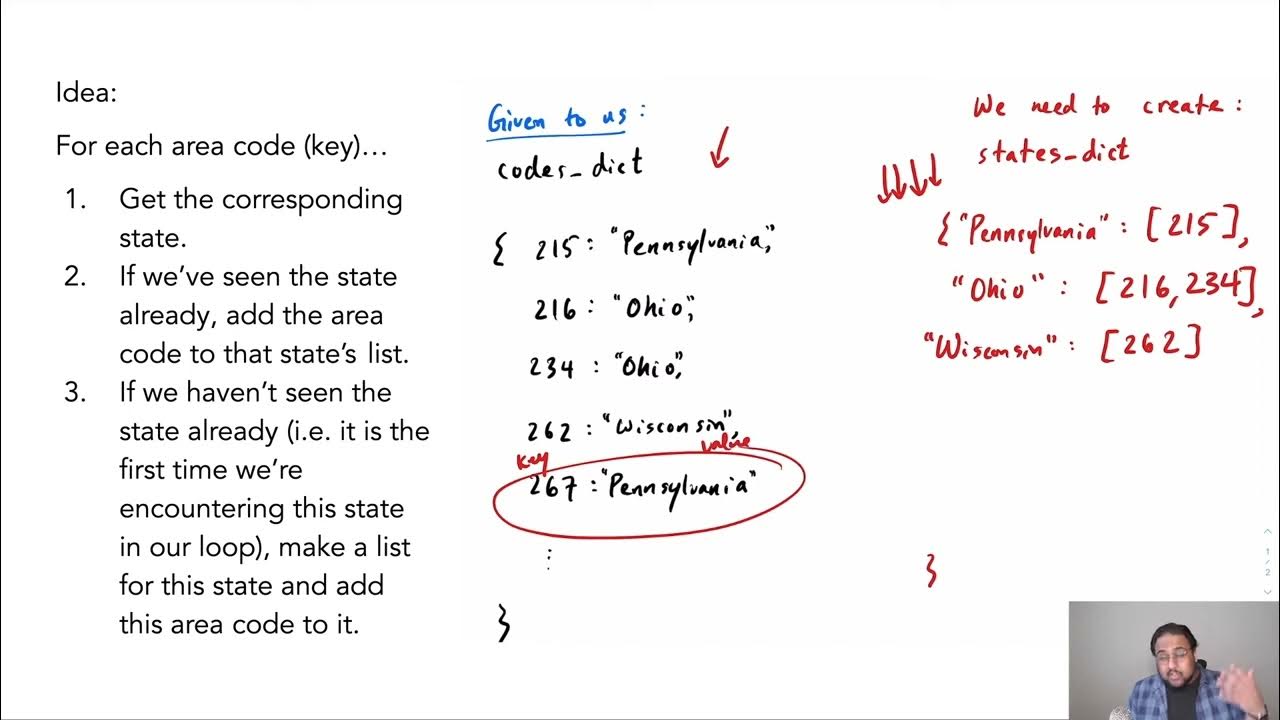 Idea:
For each area code (key)…
1. Get the corresponding
state.
2. If we've seen the state
already, add the area
code to that state's list.
3. If we haven't seen the
state already (i.e. it is the
first time we're
encountering this state
in our loop), make a list
for this state and add
this area code to it.
Given to us :
codes_dict
{ 215 : "Pennsylvania",
216 : "Ohio",
234 : "Ohio",
262 : "Wisconsin",
key value
267 : "Pennsylvania"
⋮
}
We need to create :
states_dict
{ "Pennsylvania" : [215],
"Ohio" : [216, 234],
"Wisconsin" : [262]
}
1
/
2